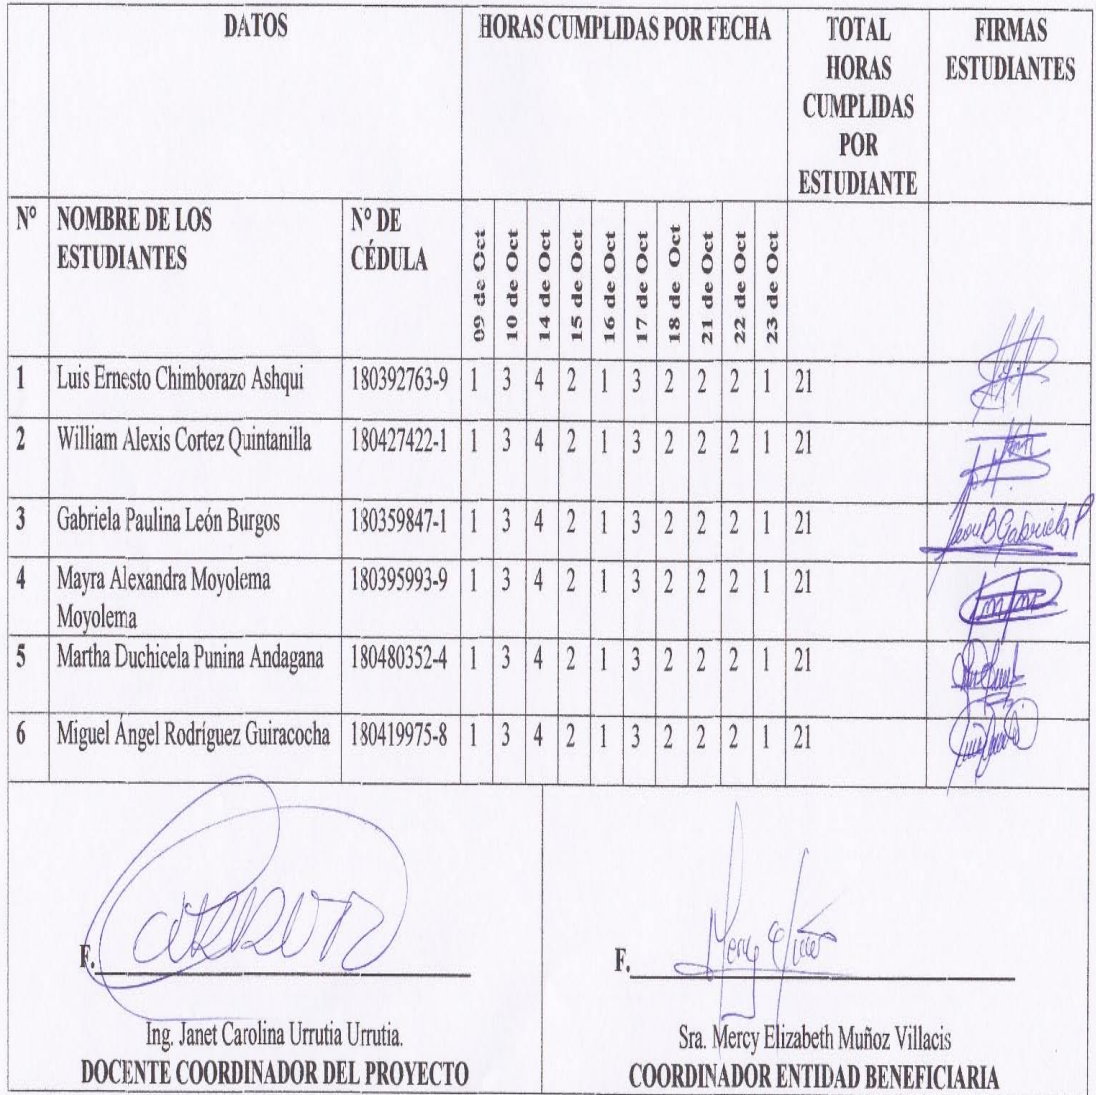 DATOS HORAS CUMPLIDAS POR FECHA TOTAL HORAS CUMPLIDAS POR ESTUDIANTE FIRMAS ESTUDIANTES
N° NOMBRE DE LOS ESTUDIANTES N° DE CÉDULA 09 de Oct 10 de Oct 14 de Oct 15 de Oct 16 de Oct 17 de Oct 18 de Oct 21 de Oct 22 de Oct 23 de Oct
1 Luis Ernesto Chimborazo Ashqui 180392763-9 1 3 4 2 1 3 2 2 2 1 21
2 William Alexis Cortez Quintanilla 180427422-1 1 3 4 2 1 3 2 2 2 1 21
3 Gabriela Paulina León Burgos 180359847-1 1 3 4 2 1 3 2 2 2 1 21 León B Gabriela P
4 Mayra Alexandra Moyolema Moyolema 180395993-9 1 3 4 2 1 3 2 2 2 1 21
5 Martha Duchicela Punina Andagana 180480352-4 1 3 4 2 1 3 2 2 2 1 21
6 Miguel Ángel Rodríguez Guiracocha 180419975-8 1 3 4 2 1 3 2 2 2 1 21
F.
Ing. Janet Carolina Urrutia Urrutia.
DOCENTE COORDINADOR DEL PROYECTO
F.
Sra. Mercy Elizabeth Muñoz Villacis
COORDINADOR ENTIDAD BENEFICIARIA